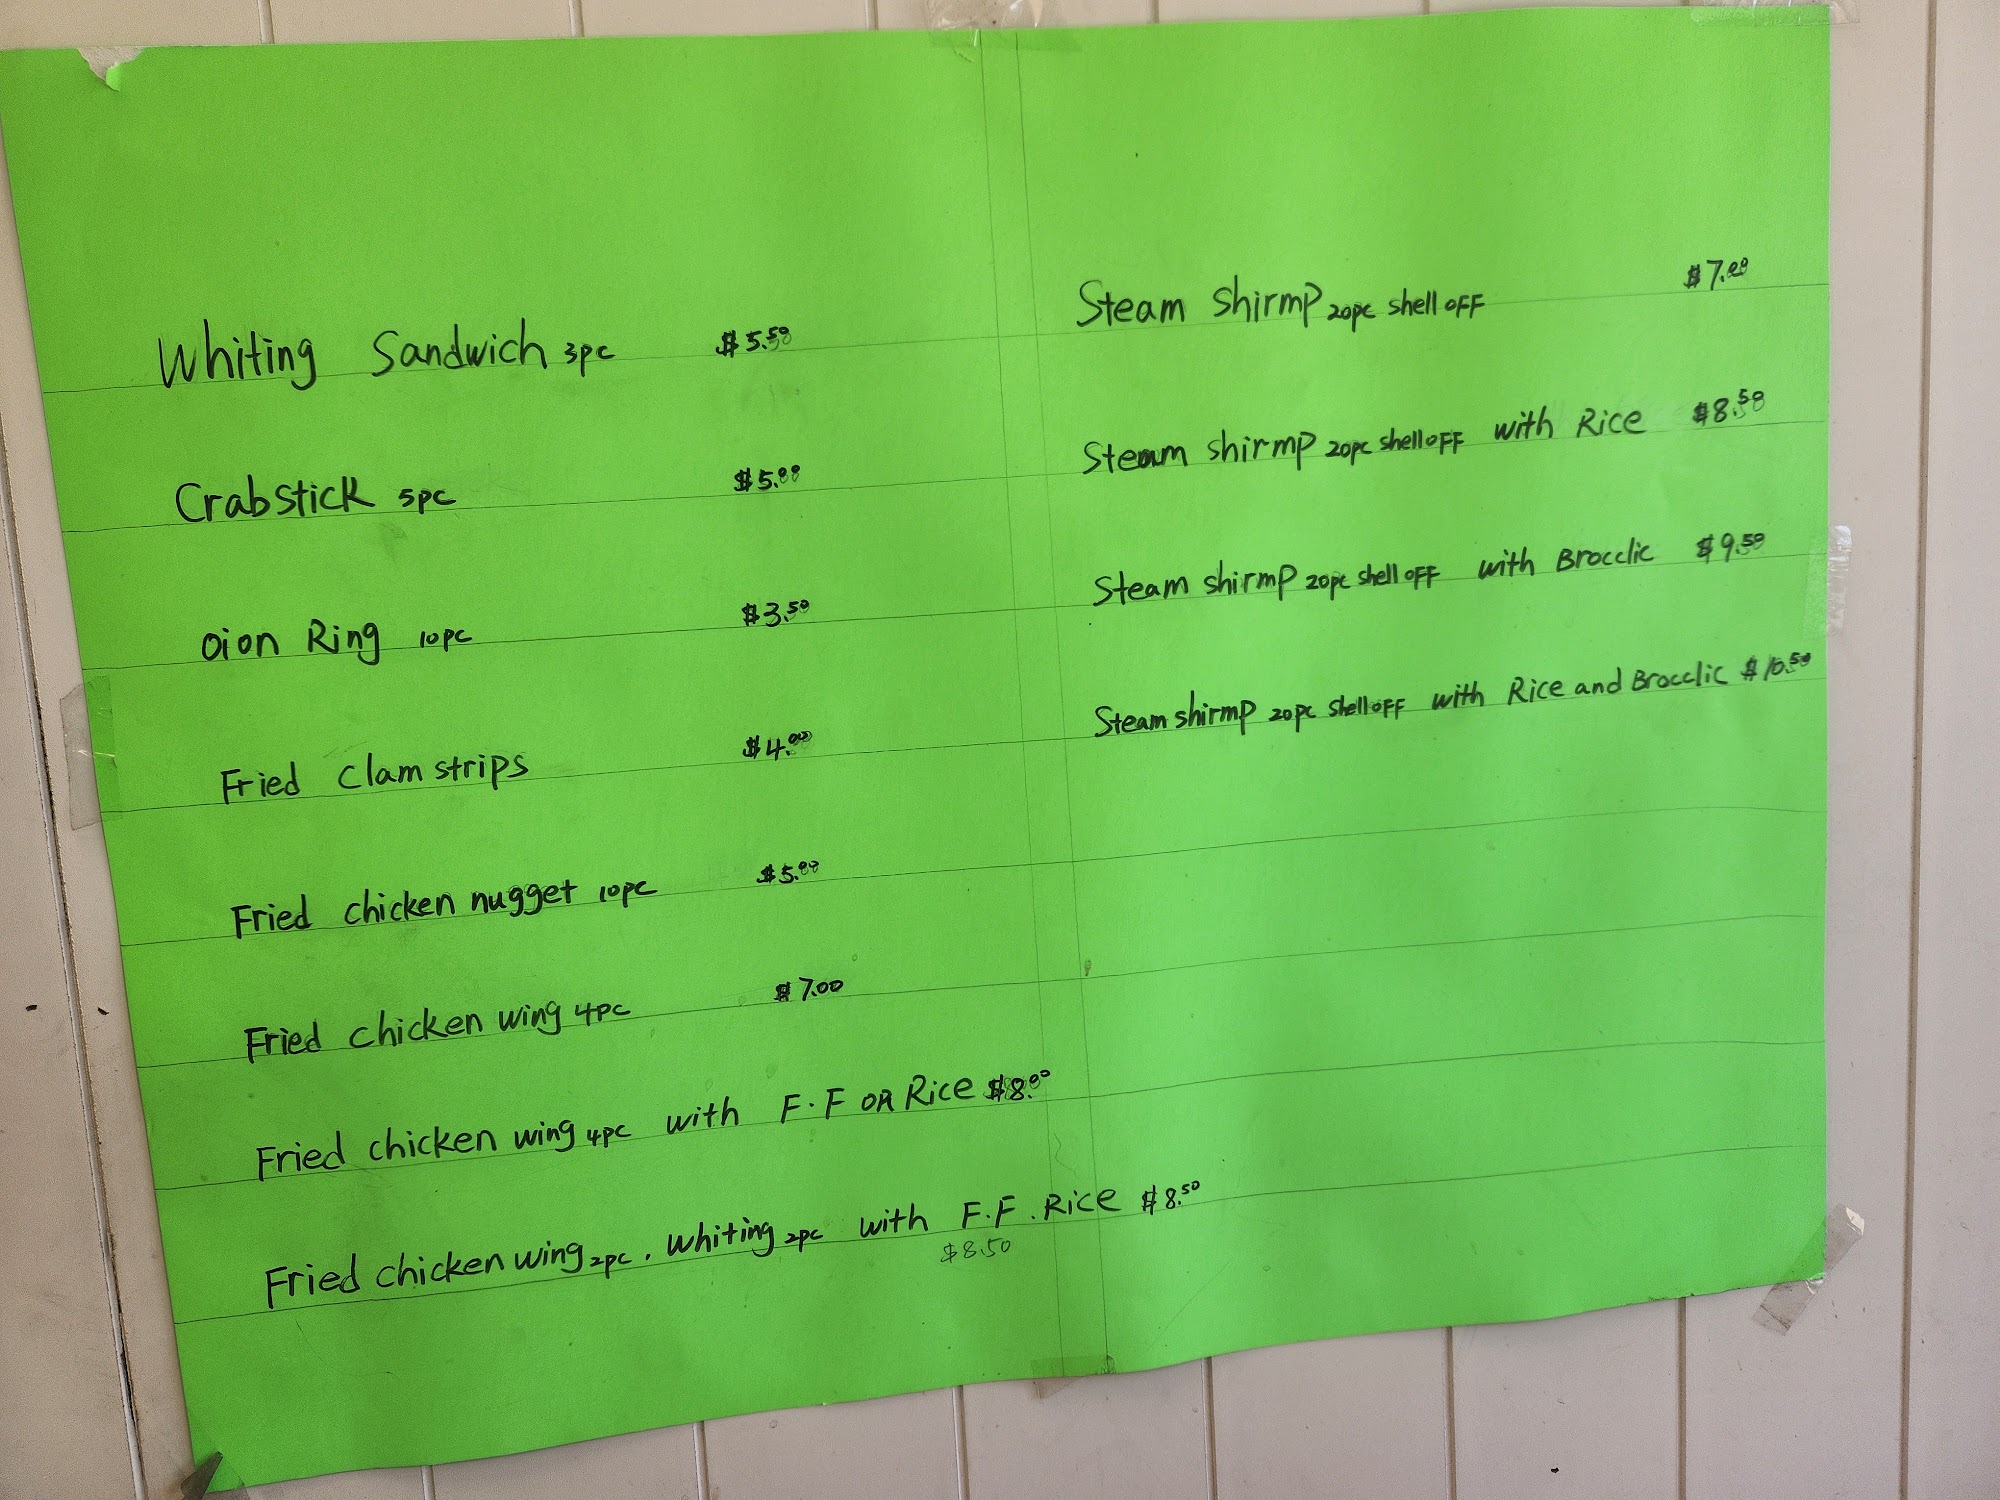 Whiting Sandwich 3pc $5.50
Crabstick 5pc $5.00
Oion Ring 10pc $3.50
Fried Clam strips $4.00
Fried chicken nugget 10pc $5.00
Fried chicken wing 4pc $7.00
Fried chicken wing 4pc with F.F OR Rice $8.00
Fried chicken wing 2pc. Whiting 2pc with F.F. Rice $8.50
$8.50
Steam Shirmp 20pc shell OFF $7.00
Steam shirmp 20pc shell OFF with Rice $8.50
Steam shirmp 20pc shell OFF with Brocclic $9.50
Steam shirmp 20pc shell OFF with Rice and Brocclic $10.50